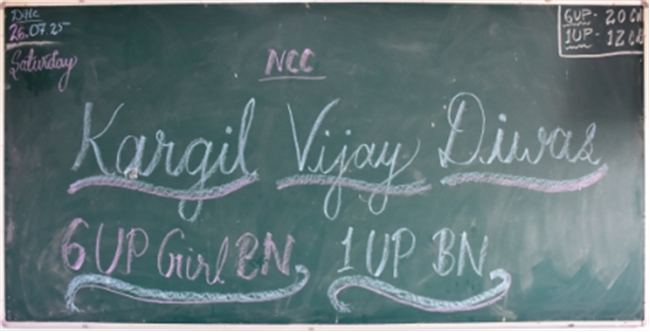 DHC
26.07.25
Saturday
6UP - 20
1UP - 12
NCC
Kargil Vijay Diwas
6 UP Girl BN 1 UP BN